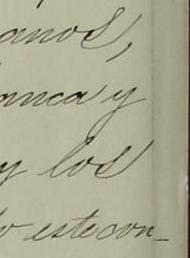 anos,
anca y
y los
lo este con-